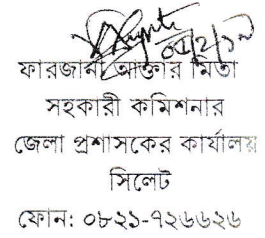 ০৫/২/১৯
ফারজানা আক্তার মিতা
সহকারী কমিশনার
জেলা প্রশাসকের কার্যালয়
সিলেট
ফোন: ০৮২১-৭২৬৬২৬